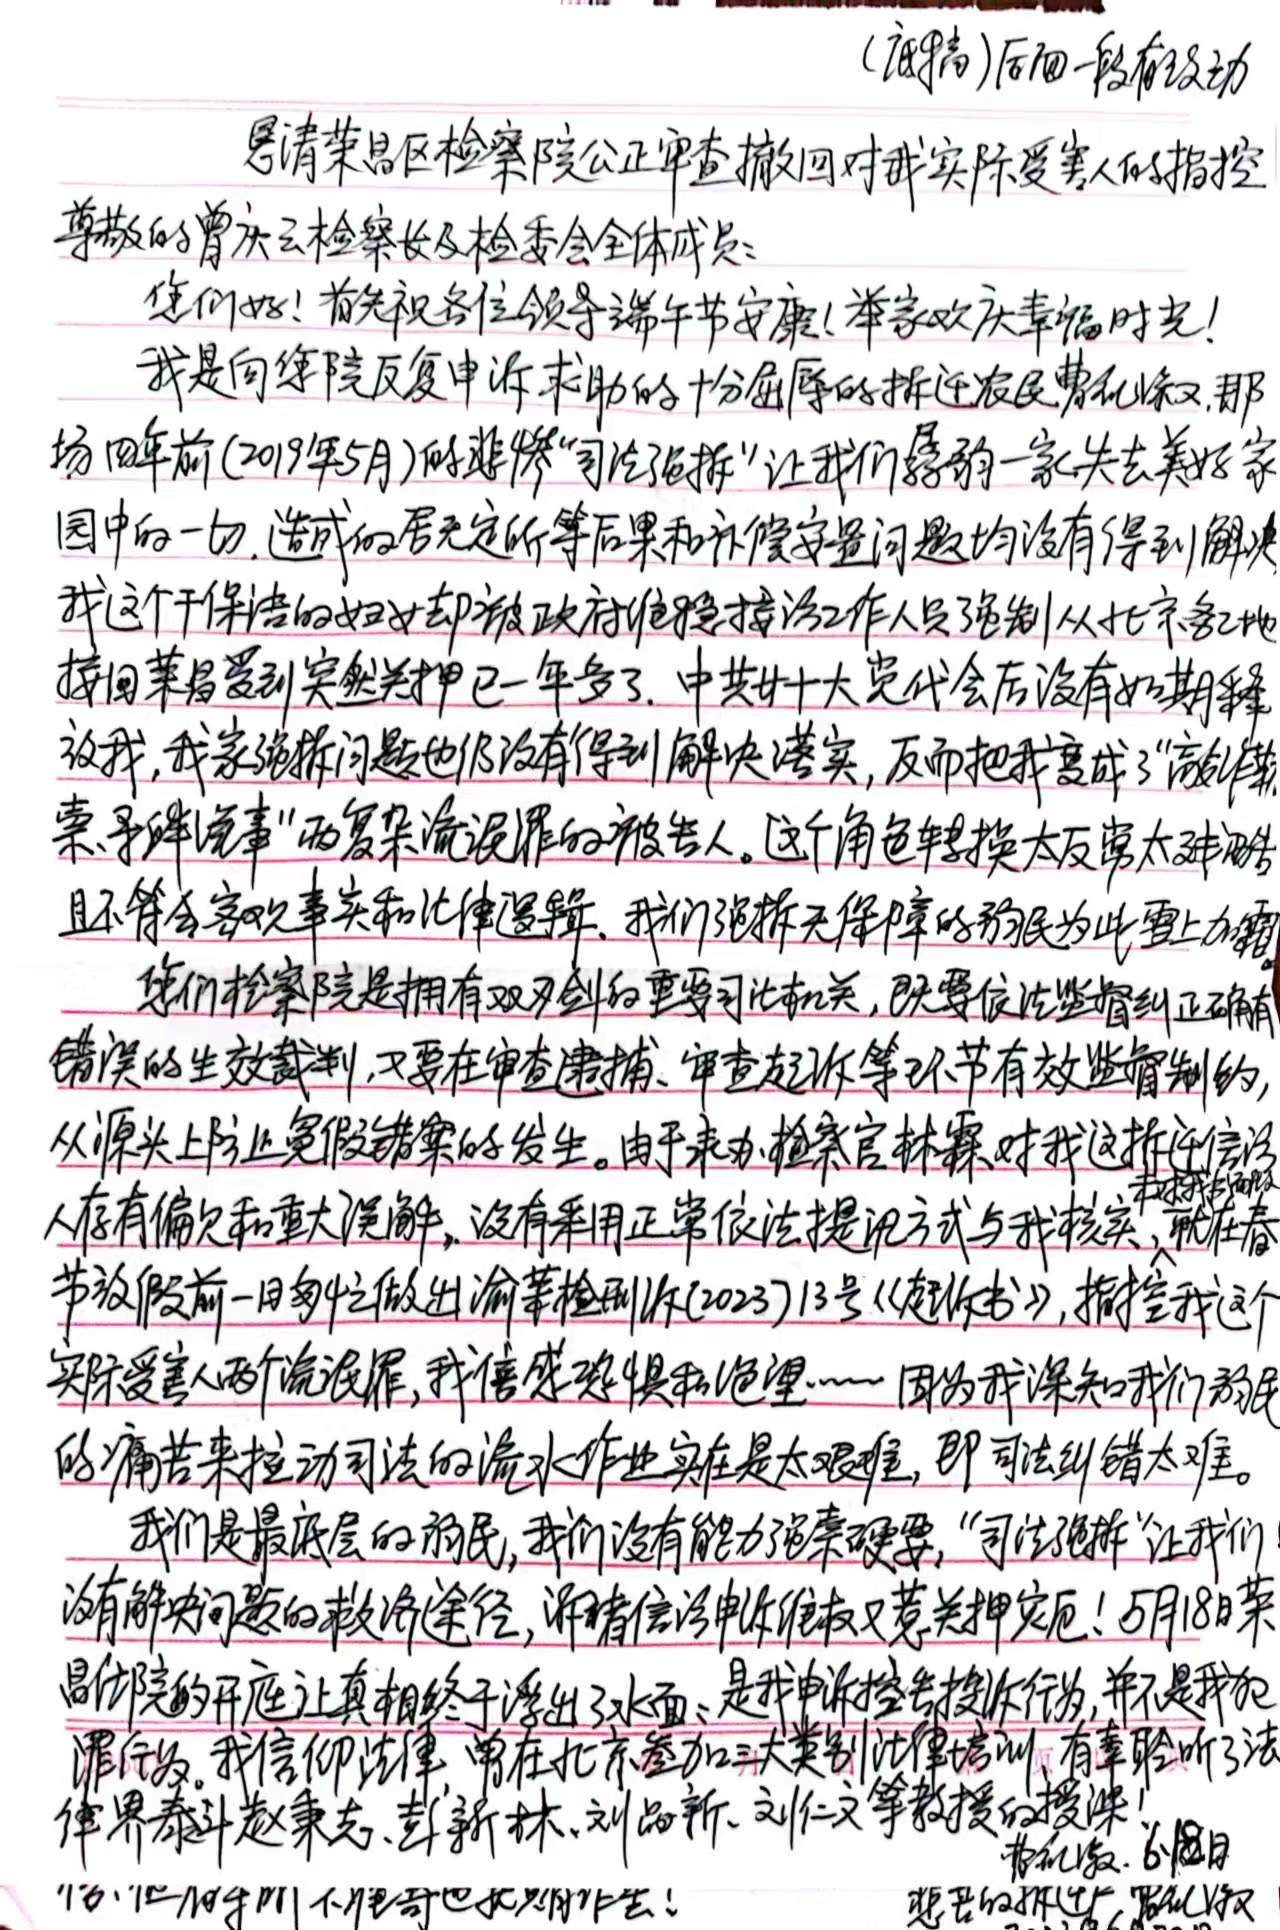 (底搞)后面一段有改动
恳请荣昌区检察院公正审查撤回对我实际受害人的指控
尊敬的曾庆云检察长及检委会全体成员:
您们好!首先祝各位领导端午节安康!举家欢庆幸福时光!
我是向您院反复申诉求助的十分屈辱的拆迁农民,那
场四年前(2019年5月)的悲惨"司法强拆"让我们孱弱一家失去美好家
园中的一切,造成的居无定所等后果和补偿安置问题均没有得到解决
我这个干保洁的妇女却被政府维稳接访工作人员强制从北京务工地
接回荣昌受到突然关押已一年多了.中共廿十大党代会后没有如期释
放我,我家强拆问题也仍没有得到解决落实,反而把我变成了"敲诈勒
索、寻衅滋事"两复杂流氓罪的被告人。这个角色转换太反常太残酷
且不符合客观事实和法律逻辑、我们强拆无保障的弱民为此雪上加霜。
您们检察院是拥有双刃剑的重要司法机关,既要依法监督纠正确有
错误的生效裁判,又要在审查逮捕、审查起诉等环节有效监督制约,
从源头上防止冤假错案的发生。由于承办检察官林霖对我这拆迁信访
人存有偏见和重大误解,没有采用正常依法提讯方式与我核实,就在春
节放假前一日匆忙做出渝荣检刑诉(2023)13号《起诉书》,指控我这个
实际受害人两个流氓罪,我倍感恐惧和绝望……因为我深知我们弱民
的痛苦来拉动司法的流水作业实在是太艰难,即司法纠错太难。
我们是最底层的弱民,我们没有能力强索硬要,"司法强拆"让我们
没有解决问题的救济途径,诉诸信访申诉维权又惹关押灾厄!5月18日荣
昌法院的开庭让真相终于浮出了水面:是我申诉控告投诉行为,并不是我犯
罪行为。我信仰法律,曾在北京参加三大类别法律培训,有幸聆听了法
律界泰斗赵秉志、彭新林、刘品新、刘仁文等教授的授课!
6.18日
悲苦的拆迁户